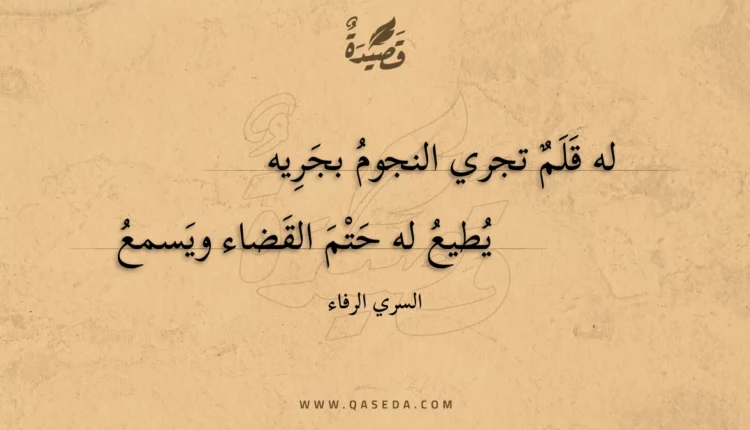 قَصِيْدَةٌ
له قَلَمٌ تجري النجومُ بجَرِيه
يُطيعُ له حَتْمَ القَضاء ويَسمعُ
السري الرفاء
WWW.QASEDA.COM